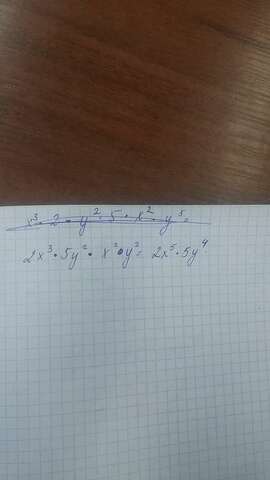 x³ · 2 · y² · 5 · x² · y⁵ =
2x³ · 5y² · x² · y² = 2x⁵ · 5y⁴